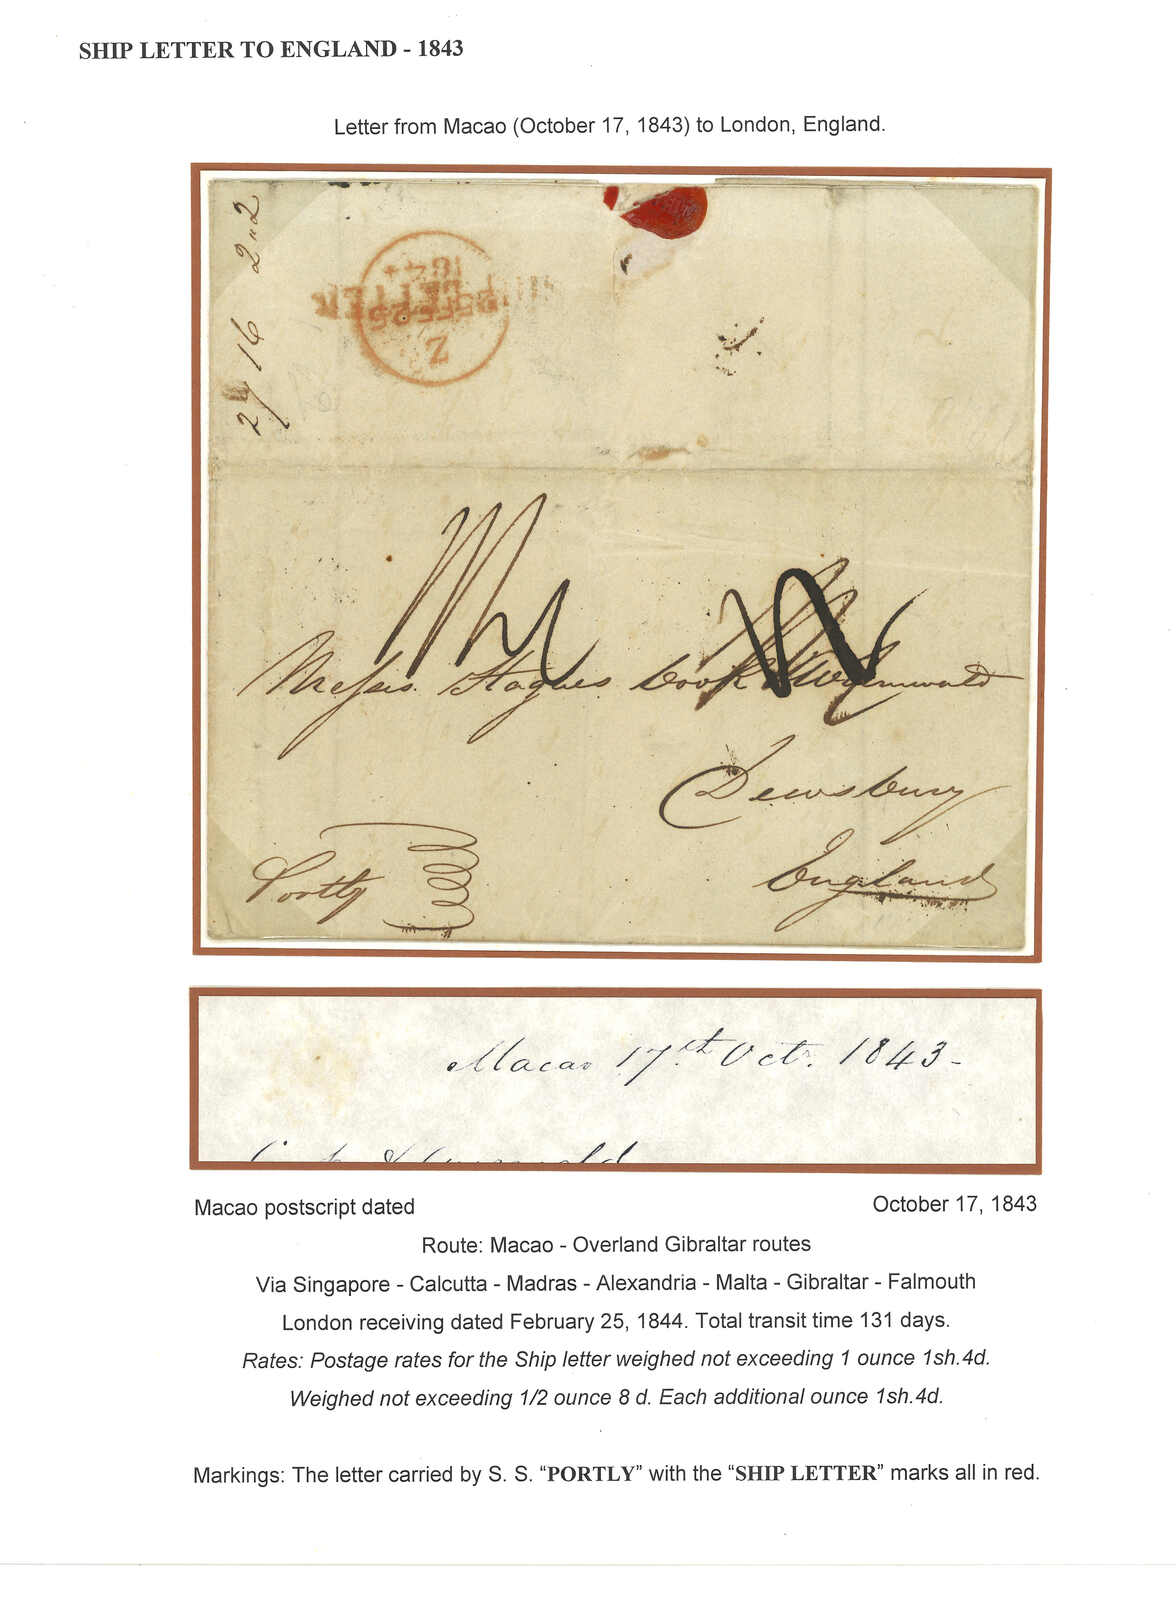 SHIP LETTER TO ENGLAND - 1843
Letter from Macao (October 17, 1843) to London, England.
27 16 2nd
1844
LETTER
Z
Messrs. Hagues Cook &
Dewsbury
England
Portly
Macao 17th Octr. 1843-
Macao postscript dated October 17, 1843
Route: Macao - Overland Gibraltar routes
Via Singapore - Calcutta - Madras - Alexandria - Malta - Gibraltar - Falmouth
London receiving dated February 25, 1844. Total transit time 131 days.
Rates: Postage rates for the Ship letter weighed not exceeding 1 ounce 1sh.4d.
Weighed not exceeding 1/2 ounce 8 d. Each additional ounce 1sh.4d.
Markings: The letter carried by S. S. “PORTLY” with the “SHIP LETTER” marks all in red.